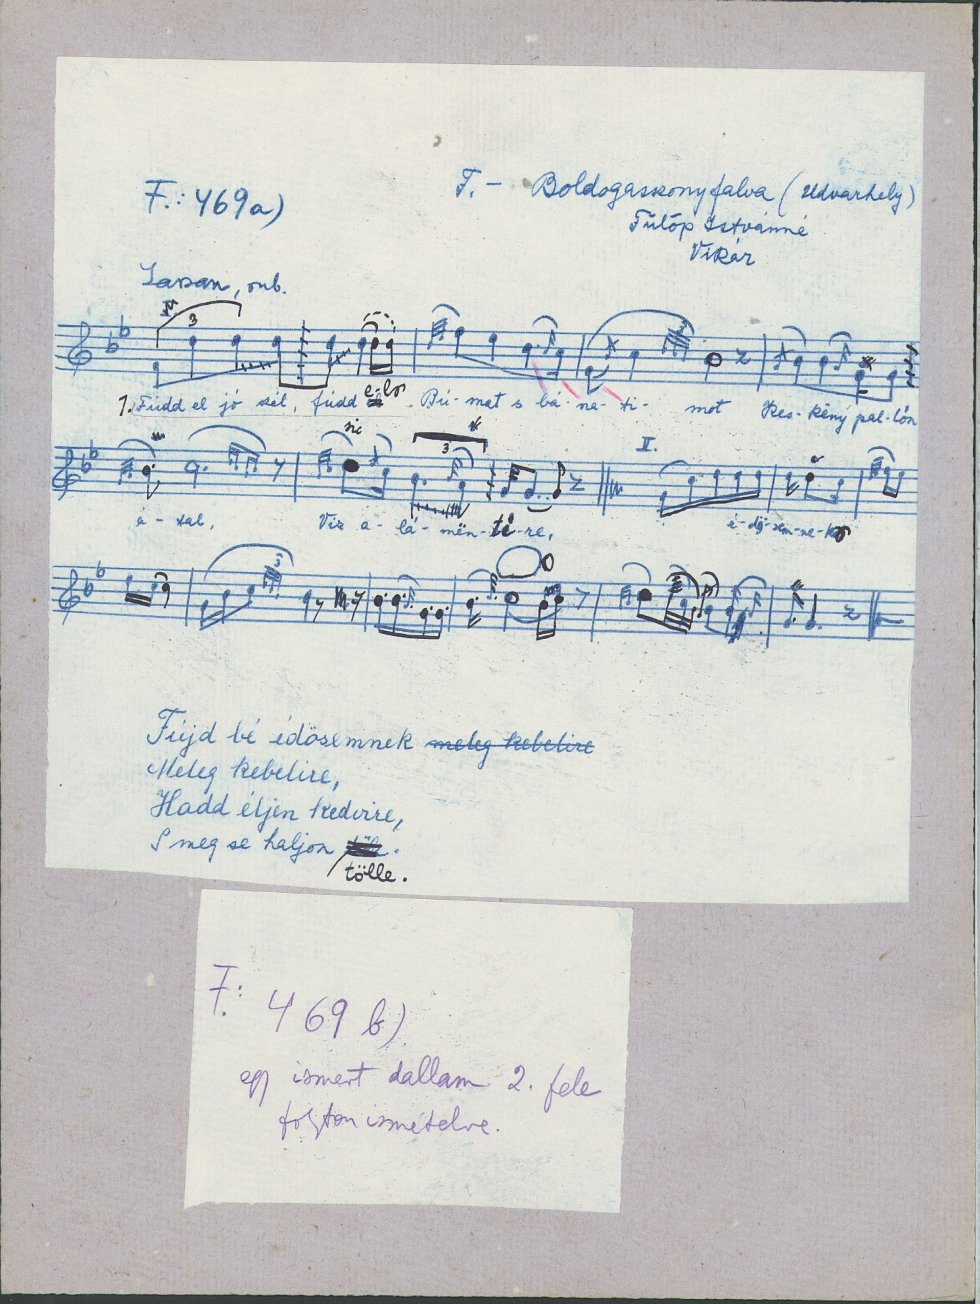 F.: 469a)
T. - Boldogasszonyfalva (Udvarhely)
Fülöp Istvánné
Vikár
Lassan, rub.
3
3
1. Fúdd el jó szél, fúdd elő Bú-mat s bá-na-ti-mot Kes-këny pal-lón
sic
3
II.
á-tal, Víz a-lá-mën-ti-re, é-dö-sem-ne-kö
3
Fújd bé édösemnek meleg kebelire
Meleg kebelire,
Hadd éljen kedvire,
S meg se haljon
tőlle.
F: 469 b)
egy ismert dallam 2. fele
folyton ismételve.